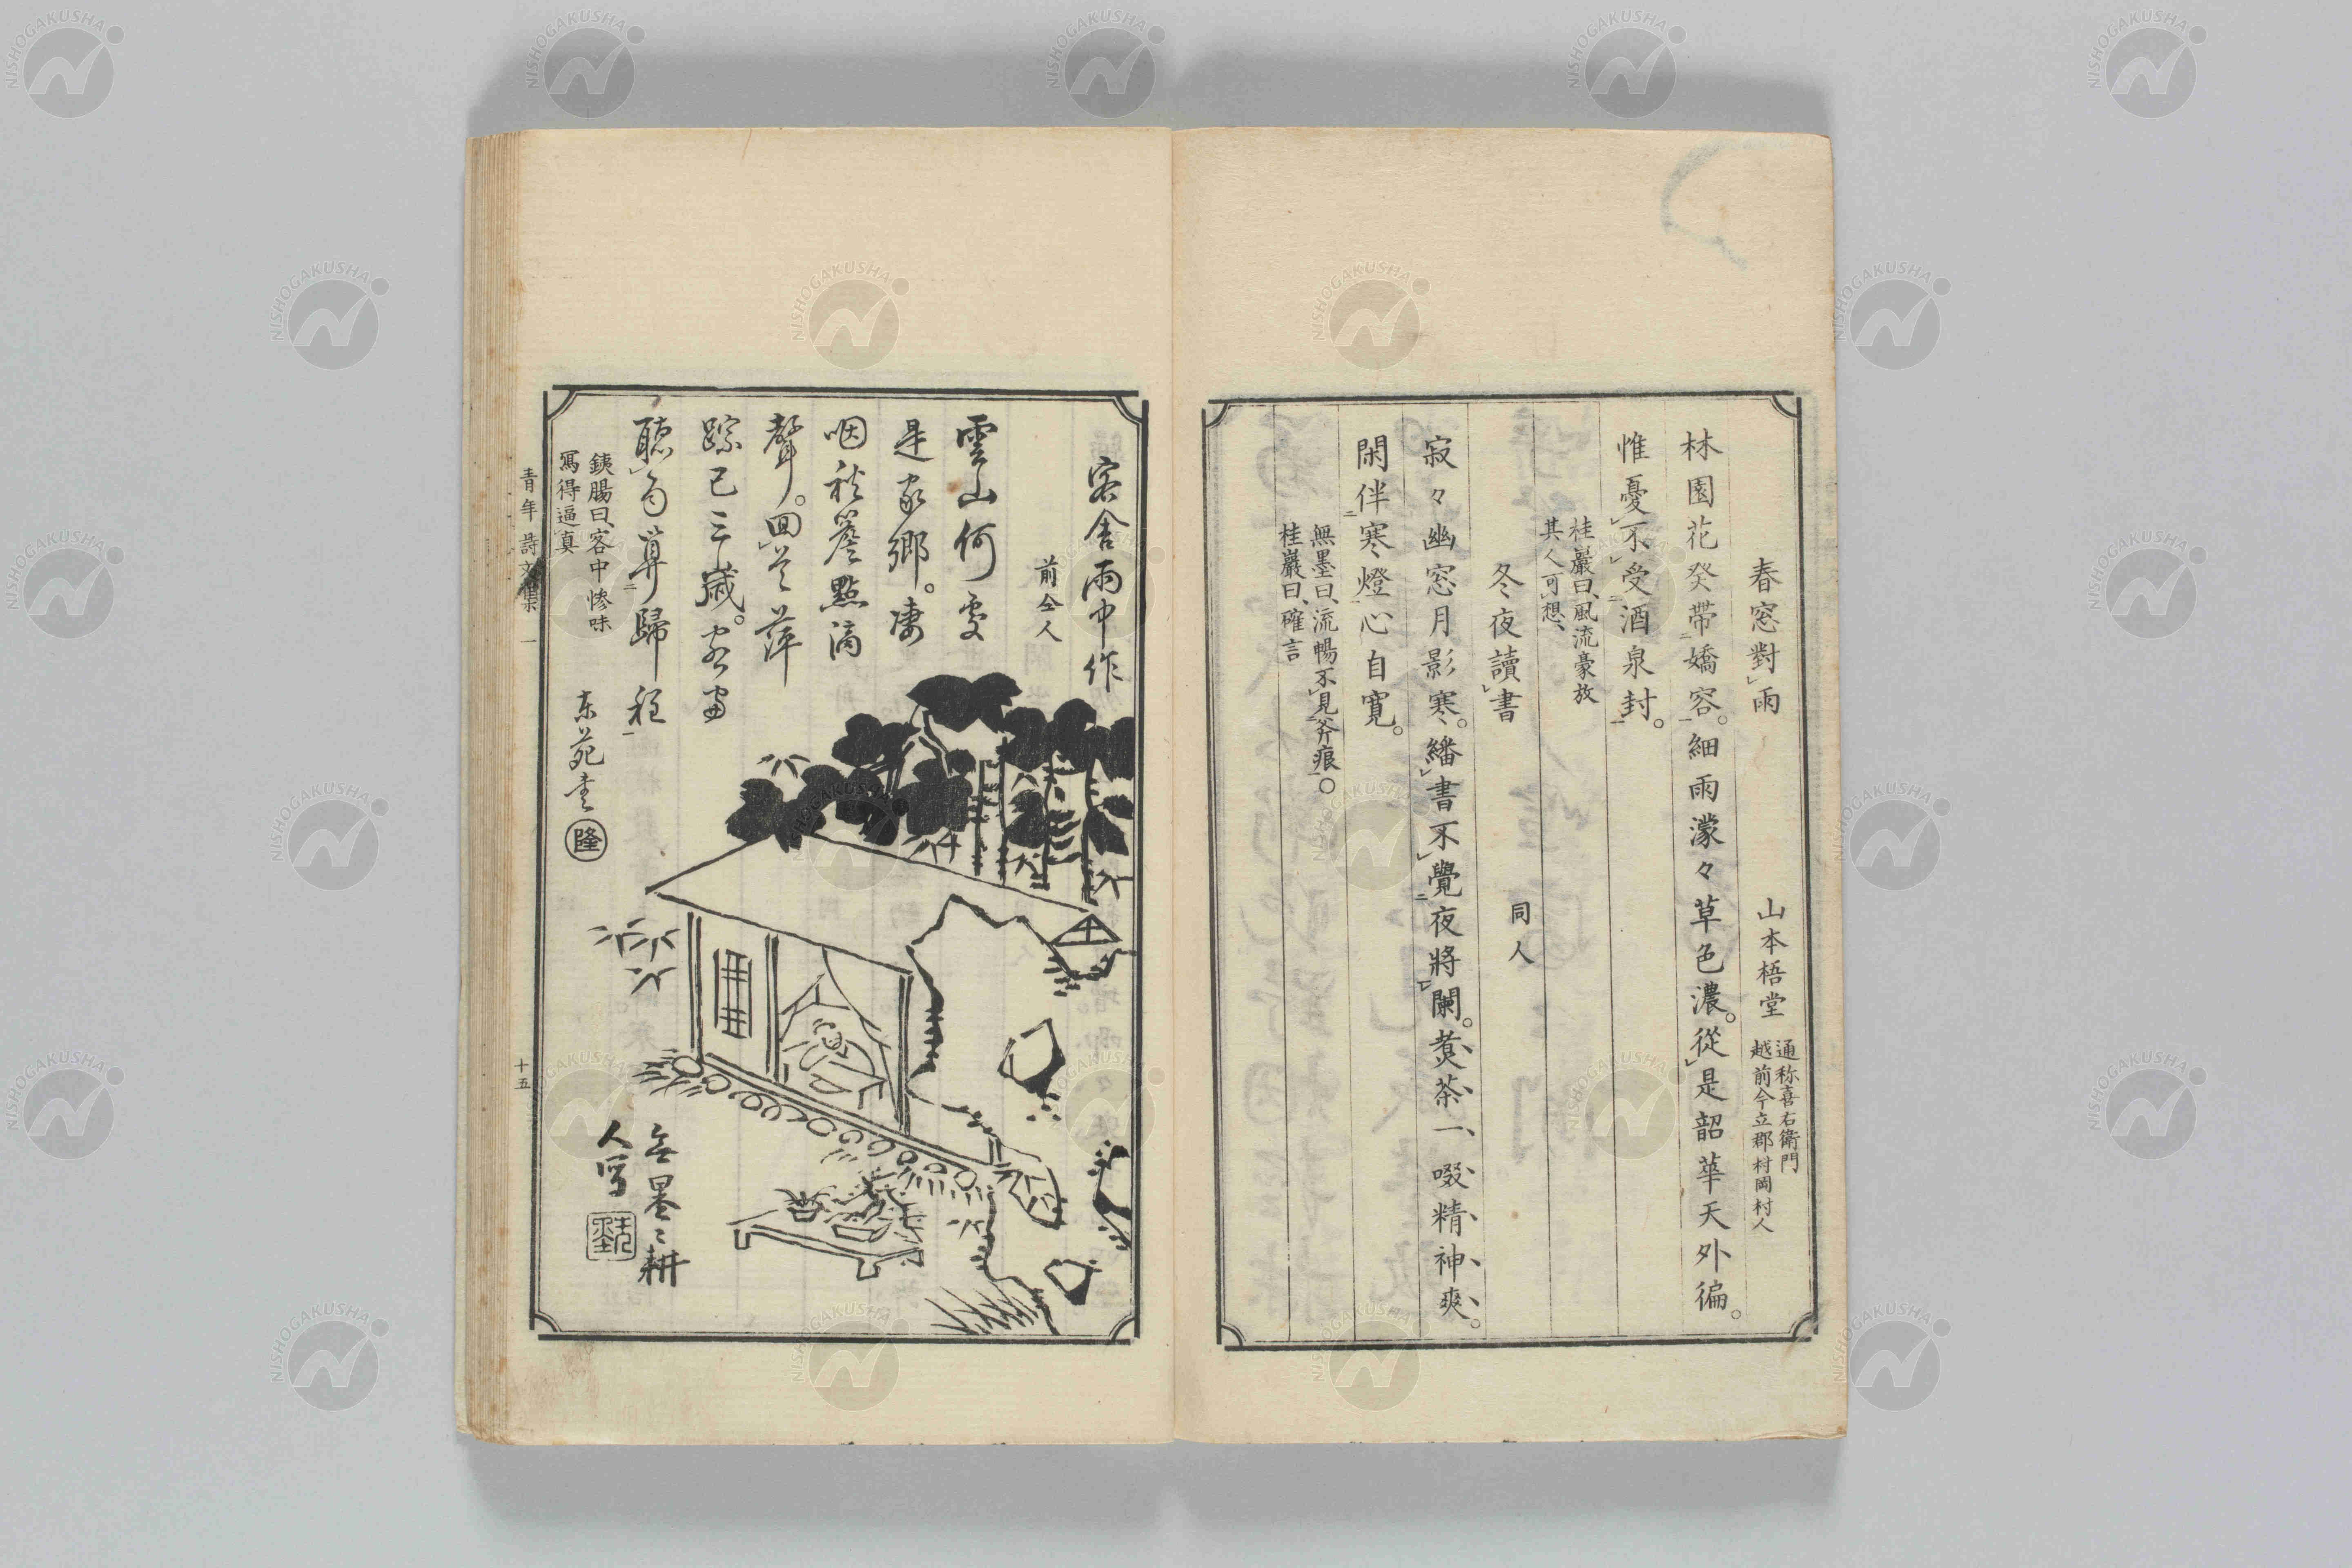 春窓對雨
山本梧堂
通称喜右衛門
越前今立郡村岡村人
林園花癸帶嬌容。細雨濛々草色濃。從是韶華天外徧。
惟憂不受酒泉封。
桂巖曰、風流豪放
其人可想、
冬夜讀書
同人
寂々幽窓月影寒。繙書不覺夜將闌。煑茶一啜精神爽。
閑伴寒燈心自寛。
無墨曰、流暢不見斧痕。
桂巖曰、確言
客舎雨中作
前仝人
雲山何處
是家郷。凄
咽秋簷點滴
聲。回首萍
踪已三歳。客窓
聴雨算歸程
銕腸曰、客中惨味
寫得逼真
东苑書
隆
無墨々耕
人写
青年詩文集 一
十五
NISHOGAKUSHA